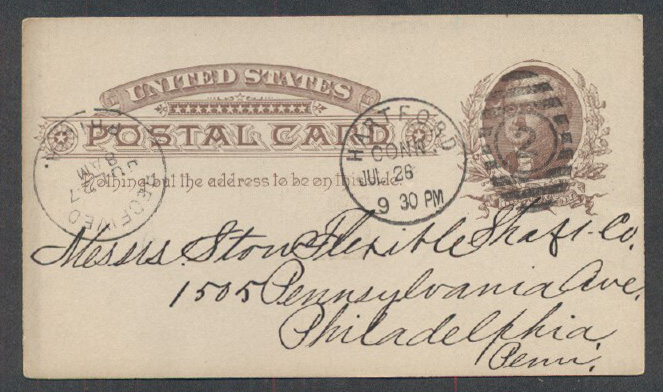 UNITED STATES
POSTAL CARD
Nothing but the address to be on this side.
HARTFORD
CONN.
JUL 26
9 30 PM
RECEIVED
8 AM
Messrs. Stow Flexible Shaft Co.
1505 Pennsylvania Ave.
Philadelphia
Penn.